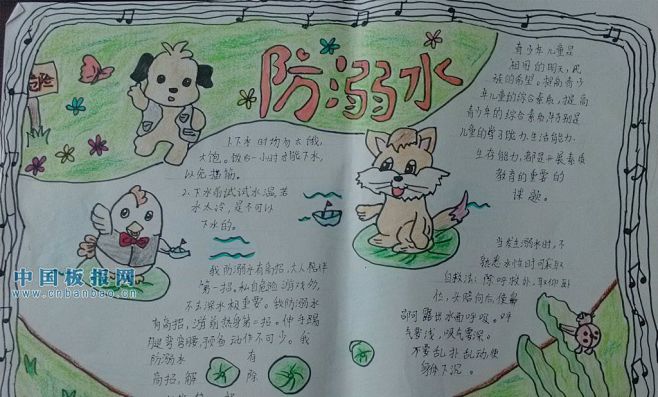 防溺水
1.下水时均勿太饿,
大饱。饭后一小时才能下水,
以免抽筋。
2.下水前试试水温,若
水太冷,是不可以
下水的。
我防溺水有高招,大人陪伴
第一招,私自危险游戏勿,
不去深水极重要。我防溺水
有高招,游前热身第二招。伸手踢
腿弯弯腰,预备动作不可少。我
防溺水 有
高招,解 除
青少年儿童是
祖国的明天,民
族的希望。提高青少
年儿童的综合素质,提高
青少年的综合素质特别是
儿童的学习能力、生活能力、
生存能力,都是开展素质
教育的重要的
课题。
当发生溺水时,不
熟悉水性时可采取
自救法:除呼救外,取仰卧
位,头部向后,使鼻
部可露出水面呼吸。呼
气要浅,吸气要深。
不要乱扑乱动使
身体下沉。
中国板报网
www.cnbanbao.cn